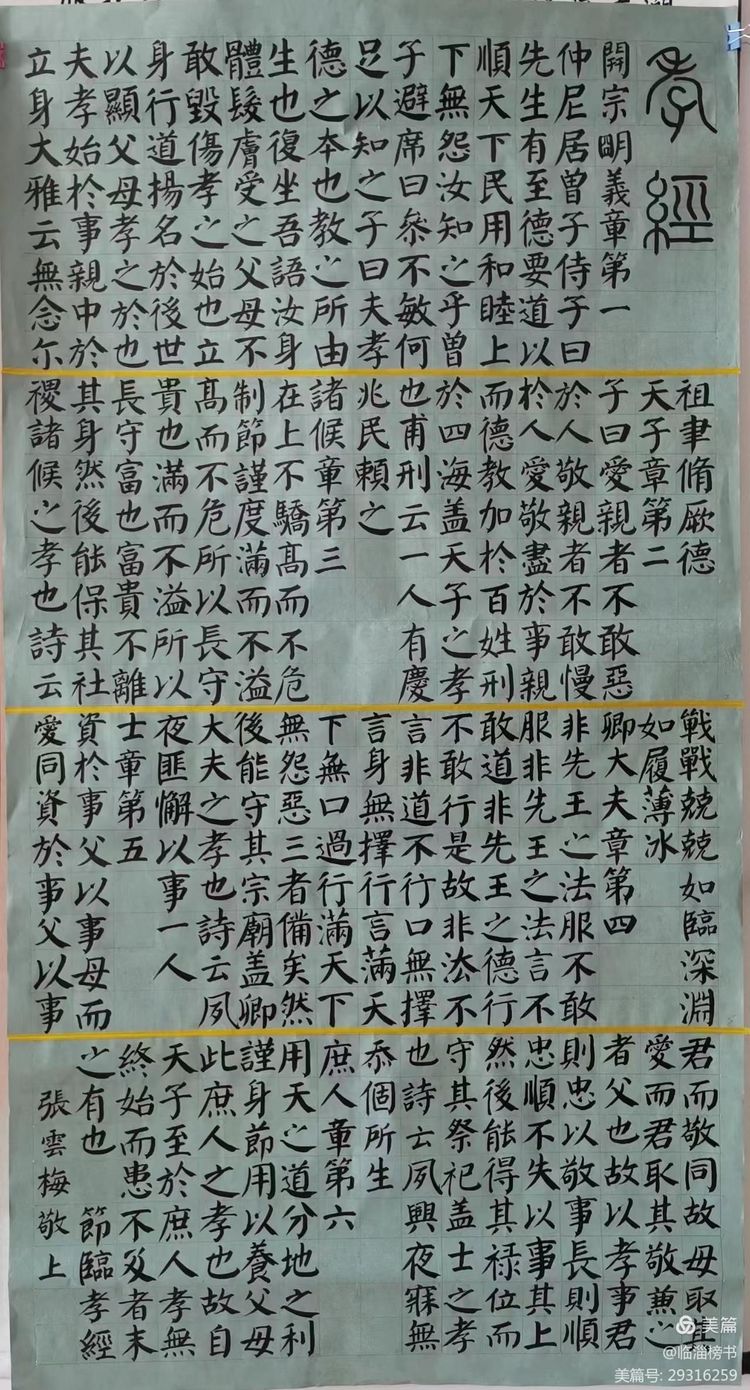 孝經
開宗明義章第一
仲尼居曾子侍子曰
先生有至德要道以
順天下民用和睦上
下無怨汝知之乎曾
子避席曰參不敏何
足以知之子曰夫孝
德之本也教之所由
生也復坐吾語汝身
體髮膚受之父母不
敢毀傷孝之始也立
身行道揚名於後世
以顯父母孝之於也
夫孝始於事親中於
立身大雅云無念尓
祖聿脩厥德
天子章第二
子曰愛親者不敢惡
於人敬親者不敢慢
於人愛敬盡於事親
而德教加於百姓刑
於四海盖天子之孝
也甫刑云一人有慶
兆民賴之
諸候章第三
在上不驕髙而不危
制節謹度滿而不溢
髙而不危所以長守
貴也滿而不溢所以
長守富也富貴不離
其身然後能保其社
稷諸候之孝也詩云
戰戰兢兢如臨深淵
如履薄冰
卿大夫章第四
非先王之法服不敢
服非先王之法言不
敢道非先王之德行
不敢行是故非法不
言非道不行口無擇
言身無擇行言滿天
下無口過行滿天下
無怨惡三者備矣然
後能守其宗廟盖卿
大夫之孝也詩云夙
夜匪懈以事一人
士章第五
資於事父以事母而
愛同資於事父以事
君而敬同故母取其
愛而君取其敬兼之
者父也故以孝事君
則忠以敬事長則順
忠順不失以事其上
然後能得其禄位而
守其祭祀盖士之孝
也詩云夙興夜寐無
忝個所生
庶人章第六
用天之道分地之利
謹身節用以養父母
此庶人之孝也故自
天子至於庶人孝無
終始而患不及者末
之有也 節臨孝經
張雲梅敬上
美篇
@临淄榜书
美篇号: 29316259